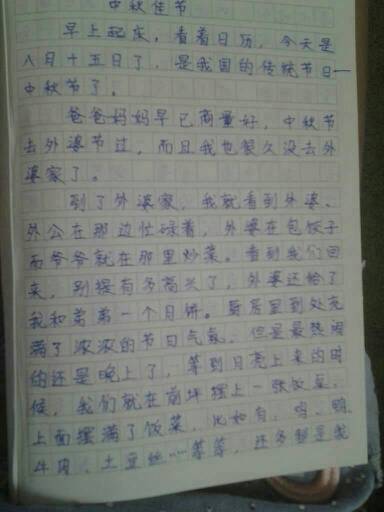 中秋佳节
早上起床，看着日历，今天是
八月十五日了，是我国的传统节日一
中秋节了。
爸爸妈妈早已商量好，中秋节
去外婆节过，而且我也很久没去外
婆家了。
到了外婆家，我就看到外婆、
外公在那边忙碌着，外婆在包饺子
而爷爷就在那里炒菜。看到我们回
来，别提有多高兴了，外婆还给了
我和弟弟一个月饼。厨房里到处充
满了浓浓的节日气氛，但是最热闹
的还是晚上了，等到月亮上来的时
候，我们就在前坪摆上一张饭桌，
上面摆满了饭菜，比如有，鸡、鸭、
牛肉、土豆丝……等等，还多都是我